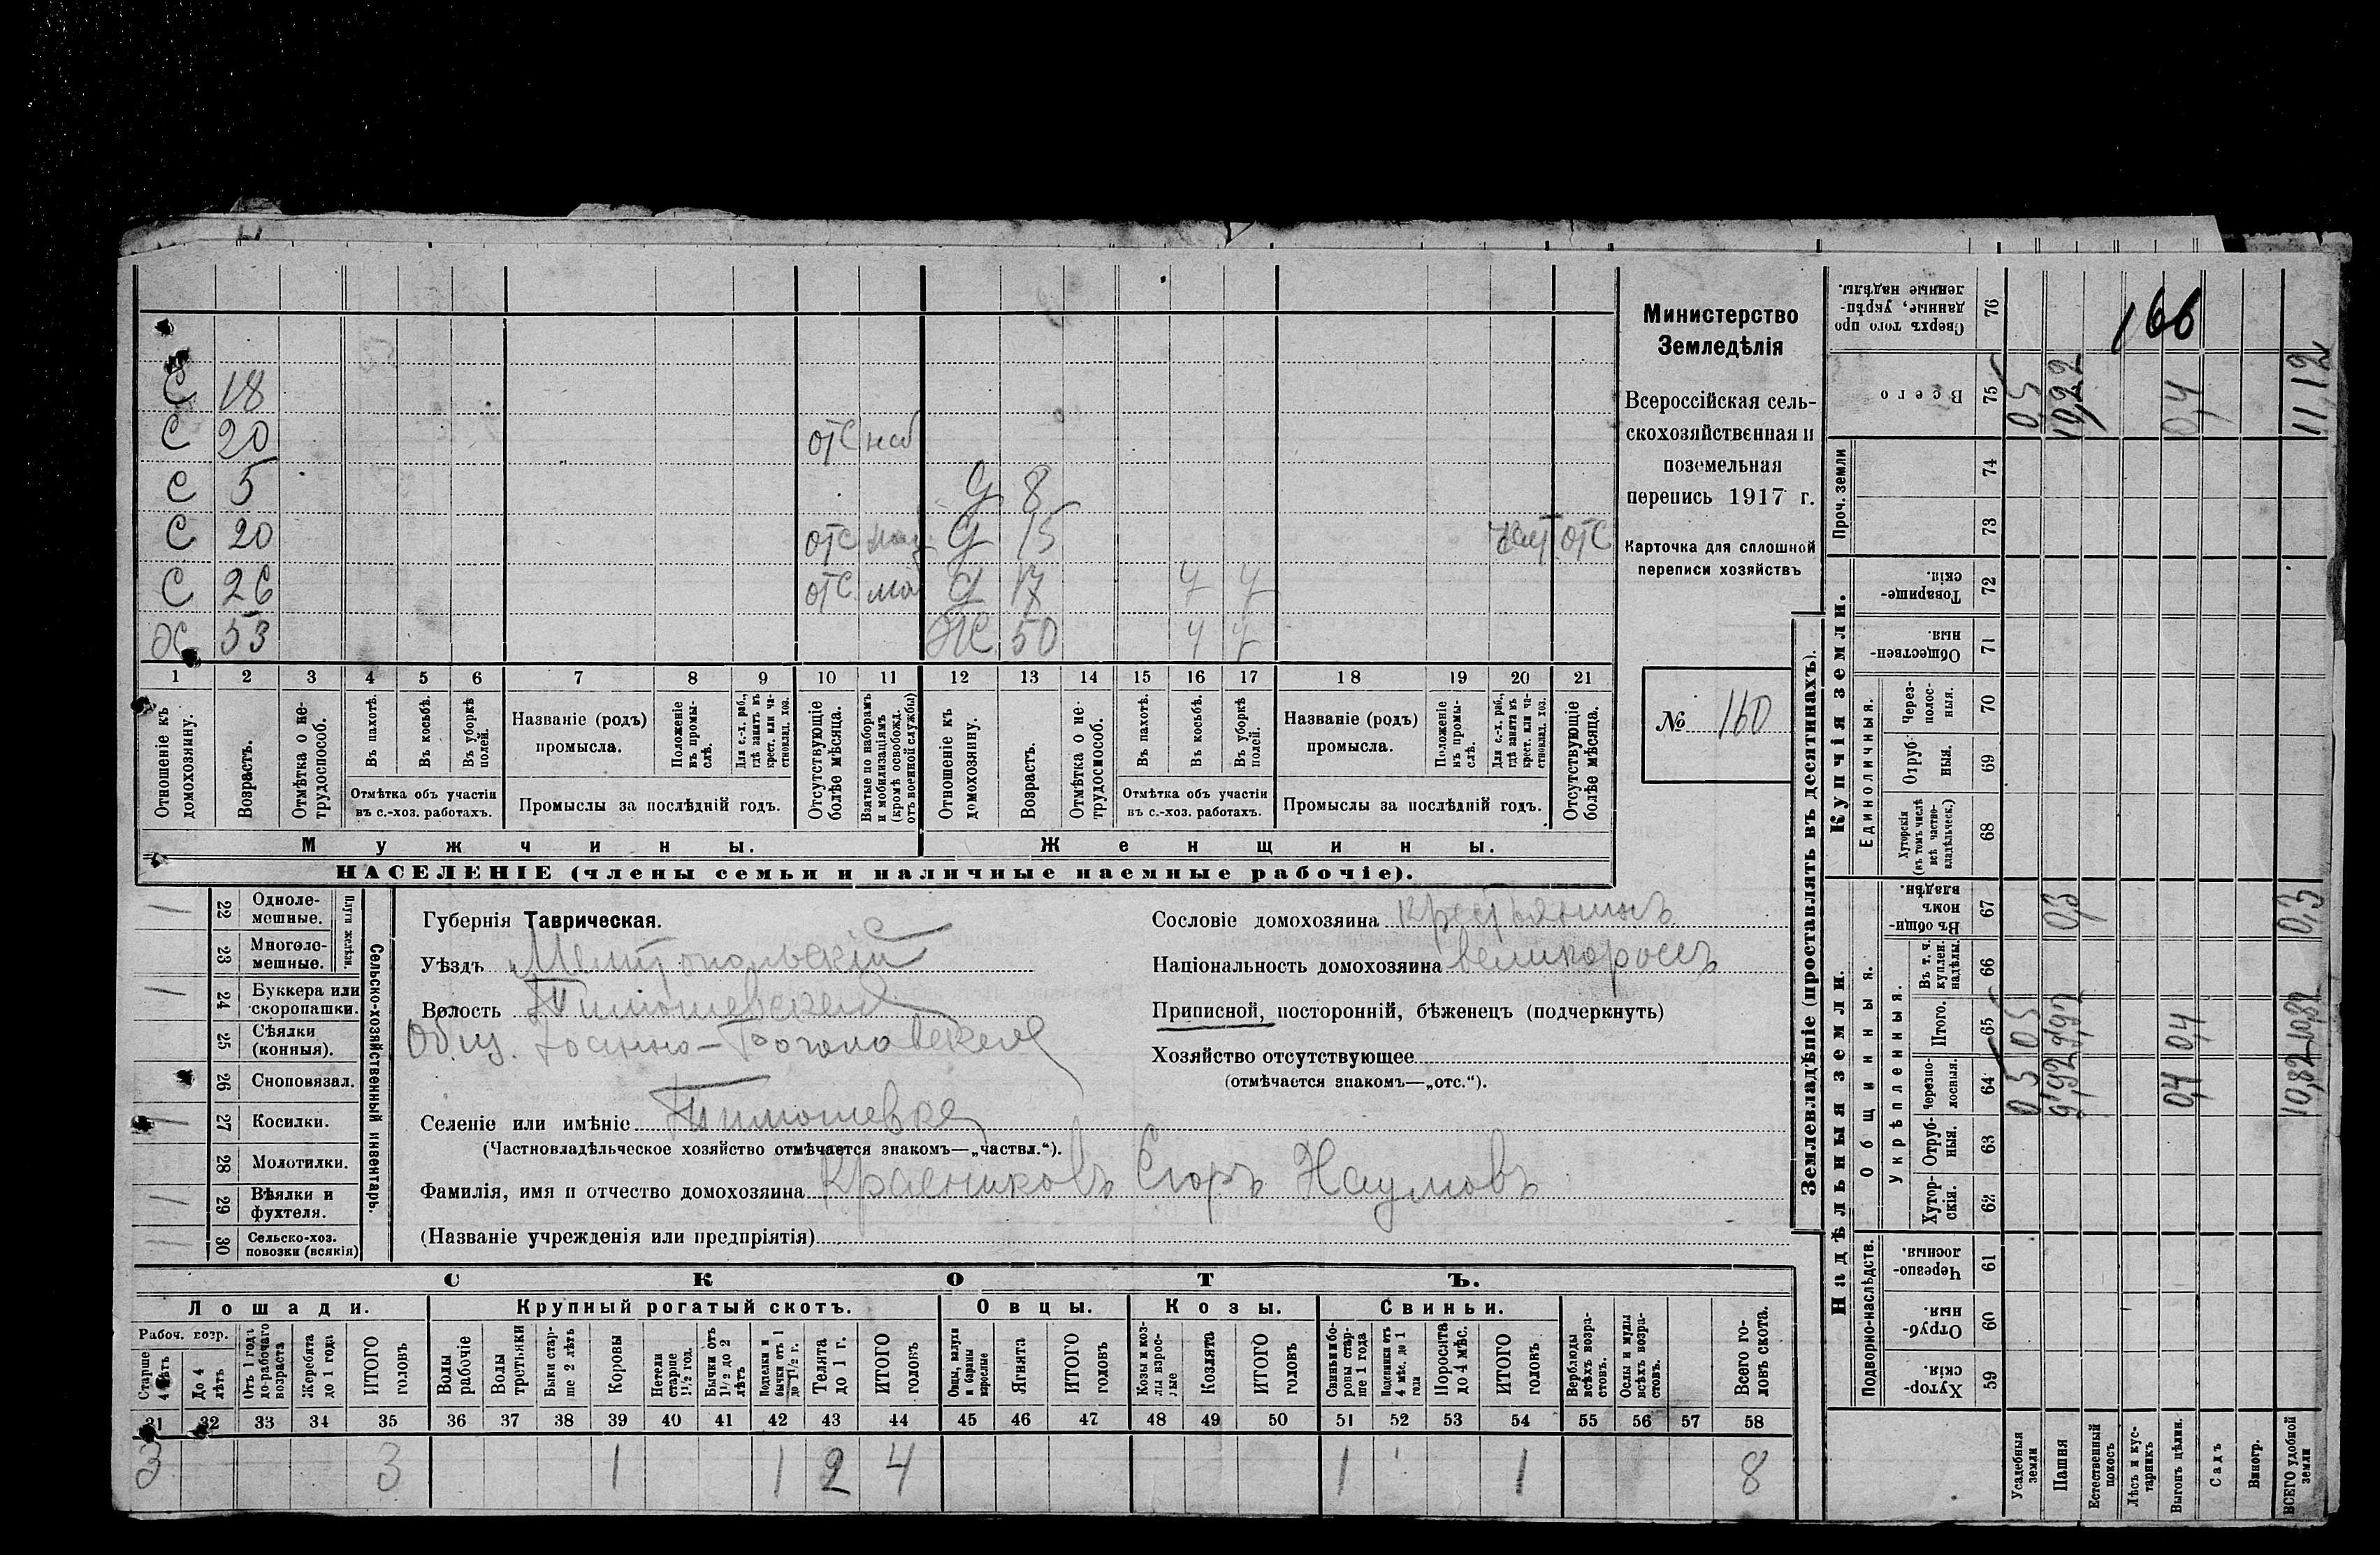 С 18
С 20 отс
С 5 Д 8
С 20 отс Д 15 отс
С 26 отс Д 17 ч ч
ДХ 53 Ж 50 ч ч
1 2 3 4 5 6 7 8 9 10 11 12 13 14 15 16 17 18 19 20 21
Отношеніе къ домохозяину.
Возрастъ.
Отмѣтка о нетрудоспособ.
Въ пахотѣ.
Въ косьбѣ.
Въ уборкѣ полей.
Отмѣтка объ участіи
въ с.-хоз. работахъ.
Названіе (родъ)
промысла.
Положеніе въ промыслѣ.
Для с.-х. раб., гдѣ занятъ въ крест. или частновлад. хоз.
Промыслы за послѣдній годъ.
Отсутствующіе болѣе мѣсяца.
Взятые по наборамъ и мобилизаціямъ (кромѣ освобожд. отъ военной службы)
Отношеніе къ домохозяину.
Возрастъ.
Отмѣтка о нетрудоспособ.
Въ пахотѣ.
Въ косьбѣ.
Въ уборкѣ полей.
Отмѣтка объ участіи
въ с.-хоз. работахъ.
Названіе (родъ)
промысла.
Положеніе въ промыслѣ.
Для с.-х. раб., гдѣ занята въ крест. или частновлад. хоз.
Промыслы за послѣдній годъ.
Отсутствующіе болѣе мѣсяца.
Мужчины. Женщины.
НАСЕЛЕНІЕ (члены семьи и наличные наемные рабочіе).
Министерство
Земледѣлія
Всероссійская сель-
скохозяйственная и
поземельная
перепись 1917 г.
Карточка для сплошной
переписи хозяйствъ
№ 160
1 22 Одноле-
мешные.
23 Многоле-
мешные.
Плуги желѣзн.
1 24 Буккера или
скоропашки.
25 Сѣялки
(конныя).
26 Сноповязал.
1 27 Косилки.
28 Молотилки.
1 29 Вѣялки и
фухтеля.
30 Сельско-хоз.
повозки (всякія)
Сельско-хозяйственный инвентарь.
Губернія Таврическая.
Уѣздъ Мелитопольскій
Волость Тимошевская
Общ. Іоанно-Богословская
Селеніе или имѣніе Тимошевка
(Частновладѣльческое хозяйство отмѣчается знакомъ—„частвл.“).
Фамилія, имя и отчество домохозяина Красниковъ Егоръ Наумовъ
(Названіе учрежденія или предпріятія)
Сословіе домохозяина крестьянинъ
Національность домохозяина великороссъ
Приписной, посторонній, бѣженецъ (подчеркнуть)
Хозяйство отсутствующее
(отмѣчается знакомъ—„отс.“).
СКОТЪ.
Лошади. Крупный рогатый скотъ. Овцы. Козы. Свиньи.
Рабоч. возр.
Старше 4 лѣтъ
До 4 лѣтъ
Отъ 1 года до рабочаго возраста
Жеребята до 1 года
ИТОГО головъ
Волы рабочіе
Волы третьяки
Быки старше 2 лѣтъ
Коровы
Нетели старше 1½ год.
Бычки отъ 1½ до 2 лѣтъ
Подѣлки и бычки отъ 1 до 1½ г.
Телята до 1 г.
ИТОГО головъ
Овцы, валухи и бараны взрослые
Ягнята
ИТОГО головъ
Козы и козлы взрослые
Козлята
ИТОГО головъ
Свиньи и боровы старше 1 года
Подсвинки отъ 4 мѣс. до 1 года
Поросята до 4 мѣс.
ИТОГО головъ
Верблюды всѣхъ возрастовъ.
Ослы и мулы всѣхъ возрастовъ.
Всего головъ скота.
31 32 33 34 35 36 37 38 39 40 41 42 43 44 45 46 47 48 49 50 51 52 53 54 55 56 57 58
3 3 1 1 2 4 1 1 8
Землевладѣніе (проставлять въ десятинахъ).
Купчія земли.
Надѣльныя земли.
Сверхъ того проданные, укрѣпленные надѣлы. 76 166
Всего 75 0,5 10,22 0,4 11,12
Проч. земли 74 73
Товарищескія. 72
Общественныя. 71
Единоличныя.
Черезполосныя. 70
Отрубныя. 69
Хуторскія (въ томъ числѣ всѣ частновладѣльческ.) 68
Общинныя.
Въ общинномъ владѣн. 67 0,3 0,3
Укрѣпленныя.
Въ т. ч. куплен. надѣлы. 66
Итого. 65 0,5 9,92 0,4 10,82
Черезполосныя. 64 0,5 9,92 0,4 10,82
Отрубныя. 63
Хуторскія. 62
Подворно-наслѣдств.
Черезполосныя. 61
Отрубныя. 60
Хуторскія. 59
Усадебныя земли
Пашня
Естественный покосъ
Лѣсъ и кустарникъ
Выгонъ цѣлин.
Садъ
Виногр.
ВСЕГО удобной земли